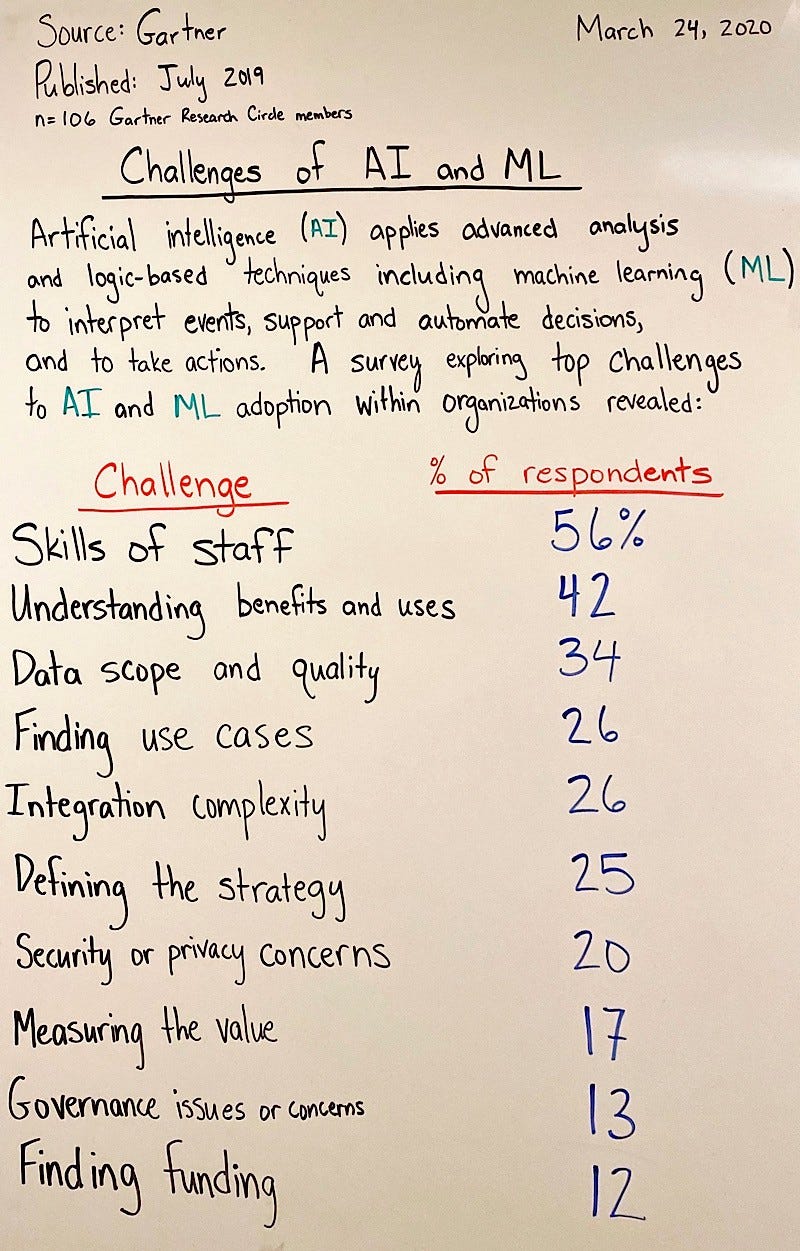 Source: Gartner
March 24, 2020
Published: July 2019
n=106 Gartner Research Circle members
Challenges of AI and ML
Artificial intelligence (AI) applies advanced analysis
and logic-based techniques including machine learning (ML)
to interpret events, support and automate decisions,
and to take actions. A survey exploring top challenges
to AI and ML adoption within organizations revealed:
Challenge % of respondents
Skills of staff 56%
Understanding benefits and uses 42
Data scope and quality 34
Finding use cases 26
Integration complexity 26
Defining the strategy 25
Security or privacy concerns 20
Measuring the value 17
Governance issues or concerns 13
Finding funding 12